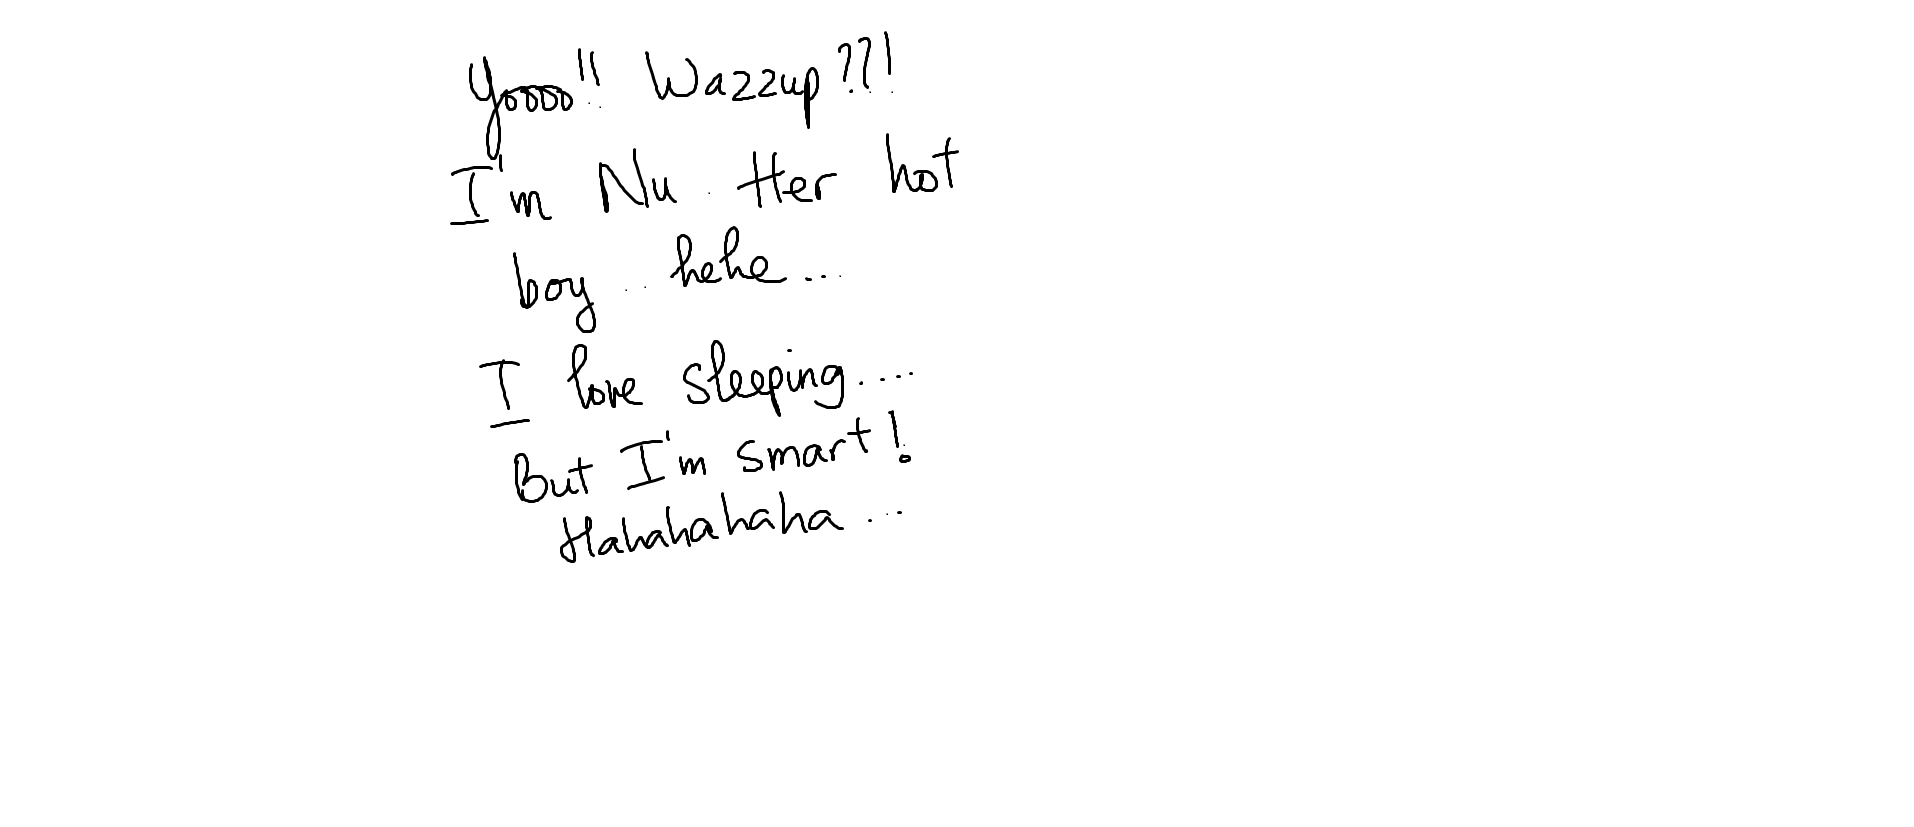 Yoooo!! Wazzup??!
I'm Nu. Her hot
boy.. hehe...
I love sleeping....
But I'm smart!
Hahahahaha...